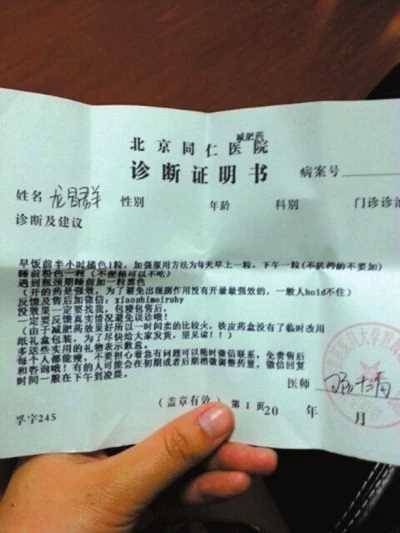 减肥药
北京同仁医院
诊断证明书
病案号
姓名 性别 年龄 科别 门诊诊
诊断及建议
早饭前半小时橘色1粒，加强服用方法为每天早上一粒，下午一粒(不抗药的不要加)
睡前粉色一粒(不便秘可以不吃)
遇到瓶颈期睡前加一粒黑色
(开的药是强效，为了避免出现副作用没有开最最强效的，一般人hold不住)
反馈及售后加微信：xiaoshimeiruby
没效果一定要反馈，包瘦包售后，
一定要找真实情况避免谈诊哦!
(由于减肥药效果好所以一时间卖的比较火，铁皮药盒没有了临时改用
纸礼盒包装，为了尽快给大家发货，望见谅!!)
多送个实用的礼物表示歉意。
每个人都能瘦，不要担心着急有问题可以随时微信联系，免费售后
和咨询哦!有的人可能会在初期或者后期稍微调整药量，微信回复
时间一般在下午到凌晨。
医师
(盖章有效) 第1页 20 年 月
京字245